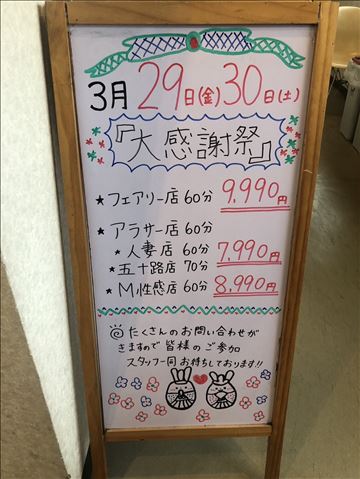 3月29日(金)30日(土)
『大感謝祭』
★フェアリー店 60分 9,990円
★アラサー店 60分
★人妻店 60分 7,990円
★五十路店 70分
★M性感店 60分 8,990円
◎たくさんのお問い合わせが
きますので皆様のご参加
スタッフ一同お待ちしております!!